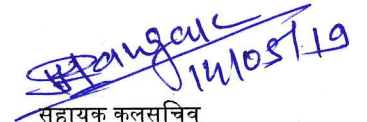 14/05/19
सहायक कलसचिव